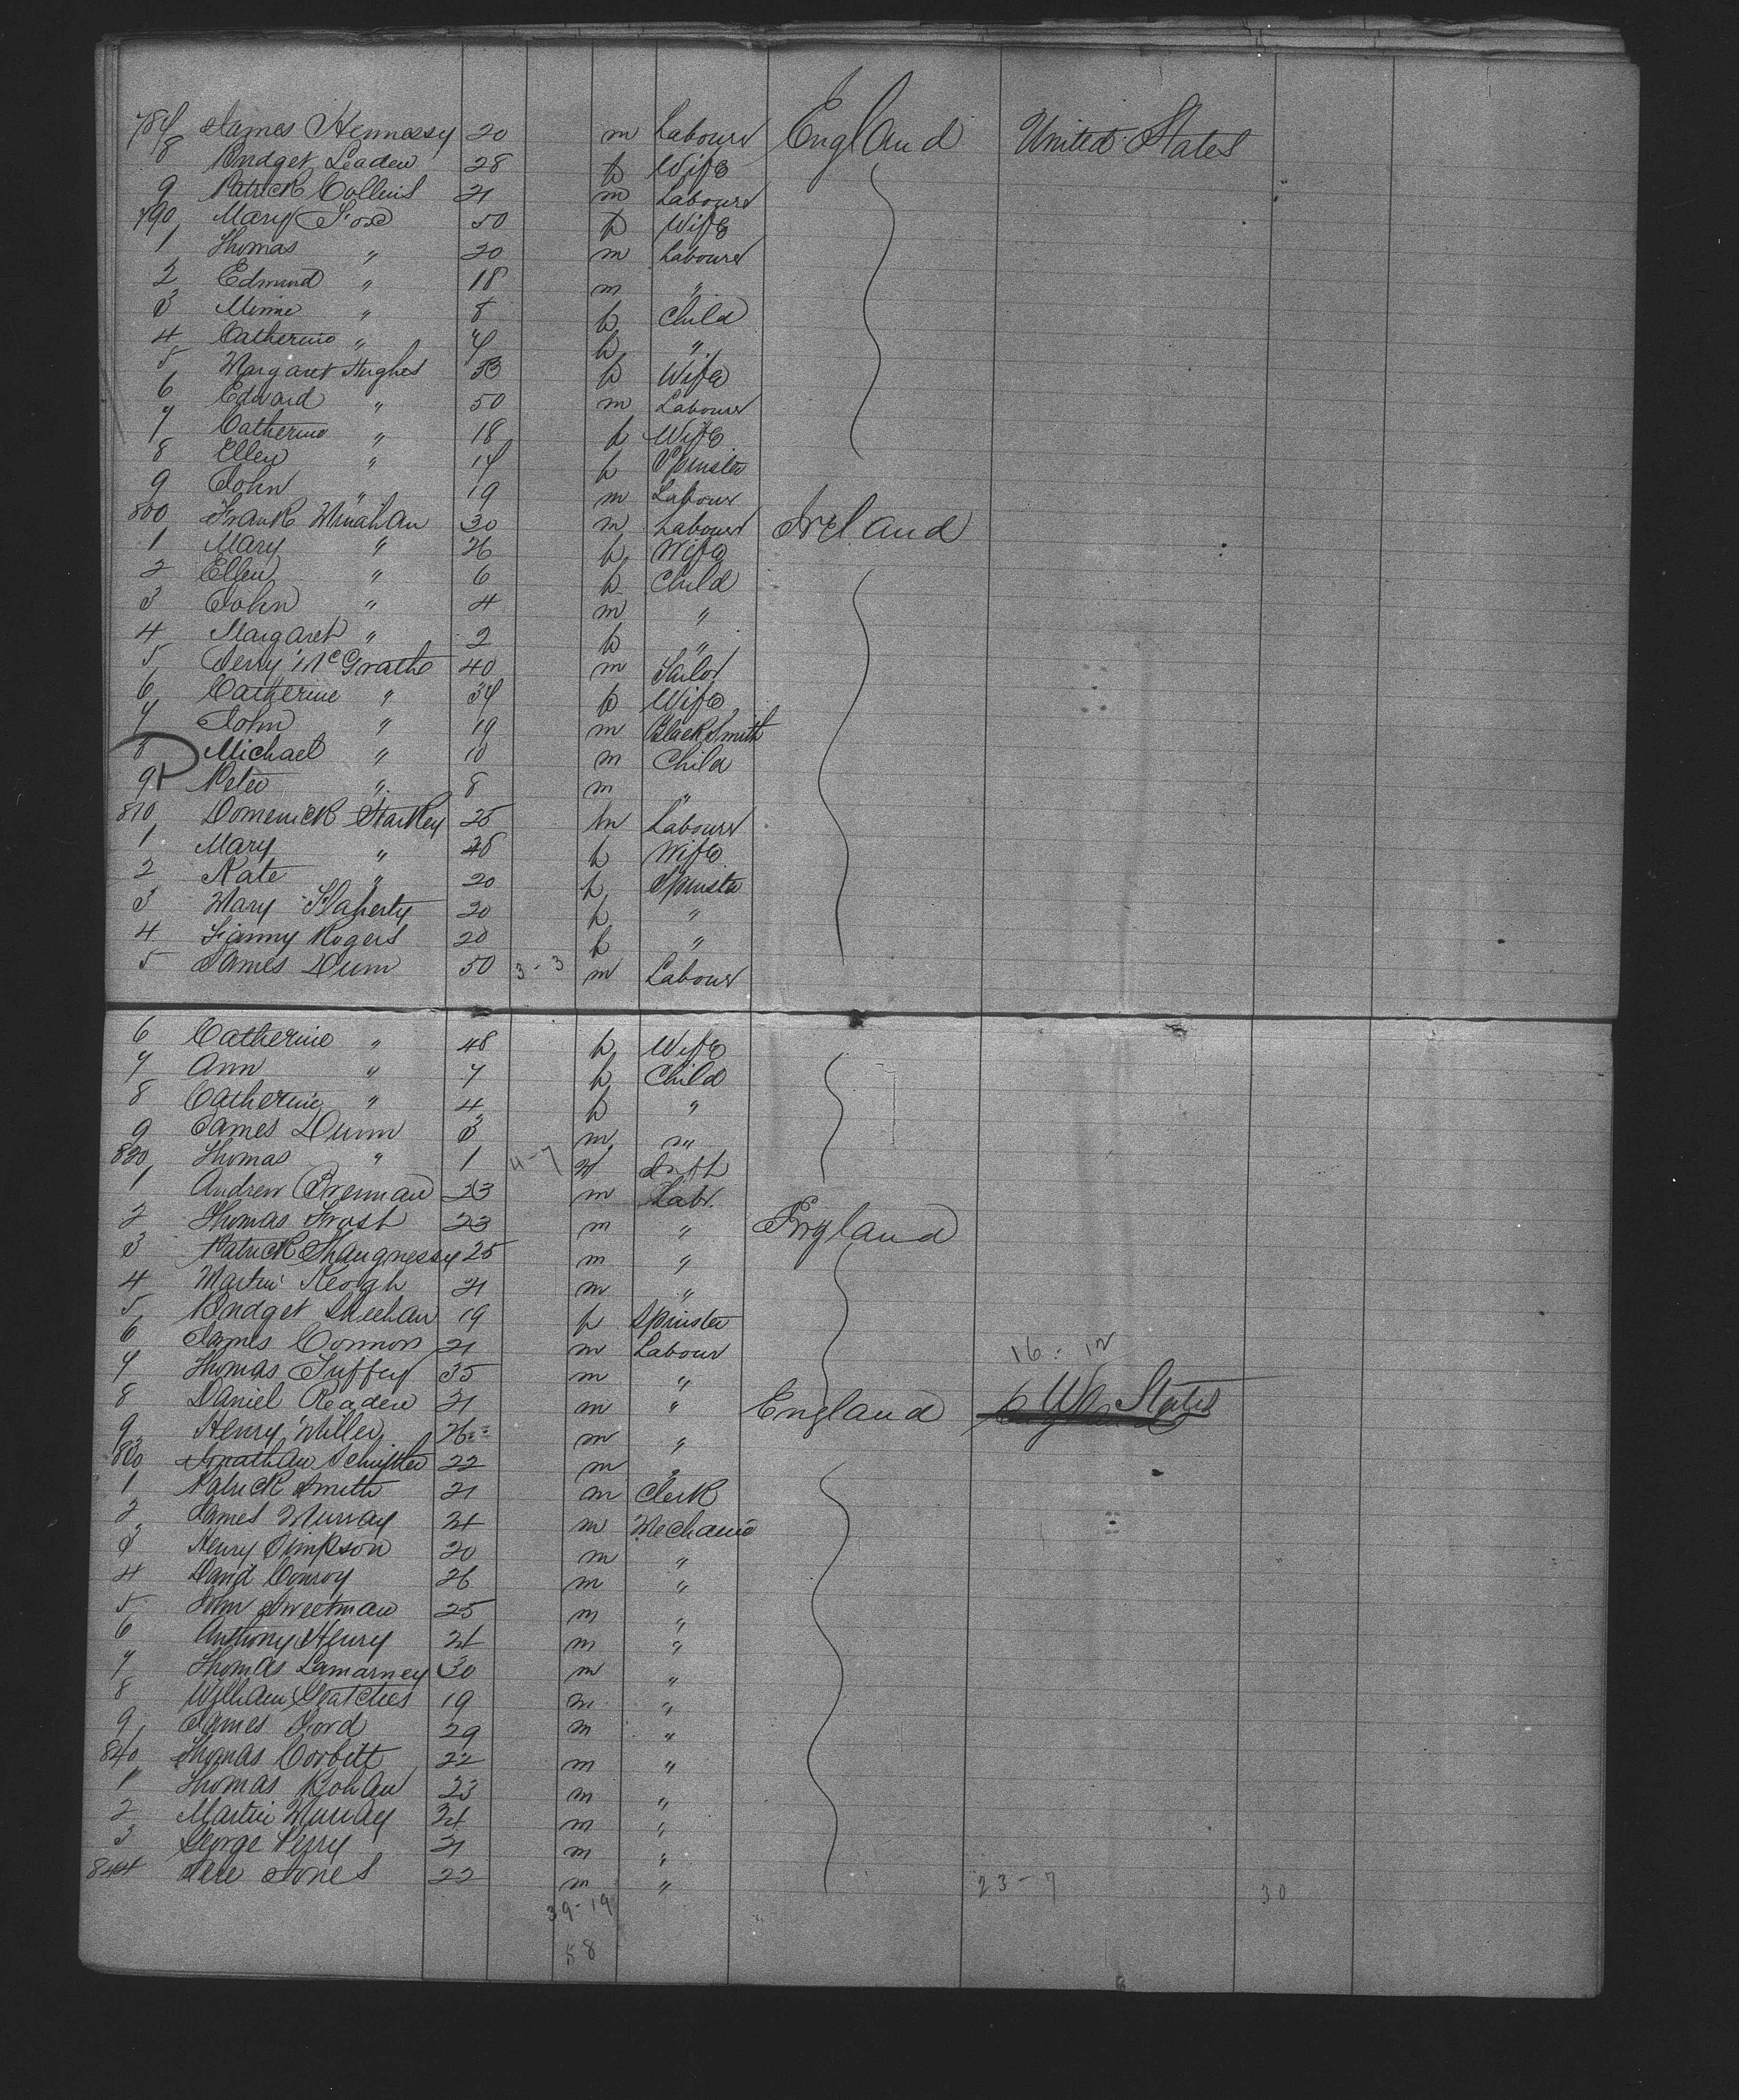 787 James Hennessy 20 m Labourer England United States
8 Bridget Leaden 28 f Wife
9 Patrick Collins 21 m Labourer
790 Mary Fox 50 f Wife
1 Thomas " 20 m Labourer
2 Edmund " 18 m "
3 Minnie " 8 f Child
4 Catherine " 7 f "
5 Margaret Hughes 33 f Wife
6 Edward " 50 m Labourer
7 Catherine " 18 f Wife
8 Ellen " 14 f Spinster
9 John " 19 m Labourer
800 Frank Minahan 30 m Labourer Ireland
1 Mary " 26 f Wife
2 Ellen " 6 f Child
3 John " 4 m "
4 Margaret " 2 f "
5 Jerry McGrath 40 m Tailor
6 Catherine " 34 f Wife
7 John " 19 m BlackSmith
8 Michael " 10 m Child
9 Peter " 8 m "
810 Domenick Starkey 25 m Labourer
1 Mary " 28 f Wife
2 Kate " 20 f Spinster
3 Mary Flaherty 20 f "
4 Fanny Rogers 20 f "
5 James Dunn 50 3-3 m Labourer
6 Catherine " 48 f Wife
7 Ann " 7 f Child
8 Catherine " 4 f "
9 James Dunn 3 m "
820 Thomas " 1 4-7 m Inft
1 Andrew Brennan 23 m Labr.
2 Thomas Frost 23 m " England
3 Patrick Shaugnessy 25 m "
4 Martin Keogh 21 m "
5 Bridget Sheehan 19 f Spinster
6 James Connors 21 m Labour
7 Thomas Tuffey 35 m " 16: 12
8 Daniel Readen 21 m " England States
9 Henry Miller 26 m "
830 Jonathan 22 m "
1 Patrick Smith 21 m Clerk
2 James Murray 24 m Mechanic
3 Henry Simpson 20 m "
4 David Conroy 26 m "
5 John Sweetman 25 m "
6 Anthony Henry 21 m "
7 Thomas Lamarney 30 m "
8 William 19 m "
9 James Ford 29 m "
840 Thomas Corbitt 22 m "
1 Thomas Bohan 23 m "
2 Martin Murray 24 m "
3 George Perry 21 m "
844 Jones 22 m " 23-7 30
39-19
58